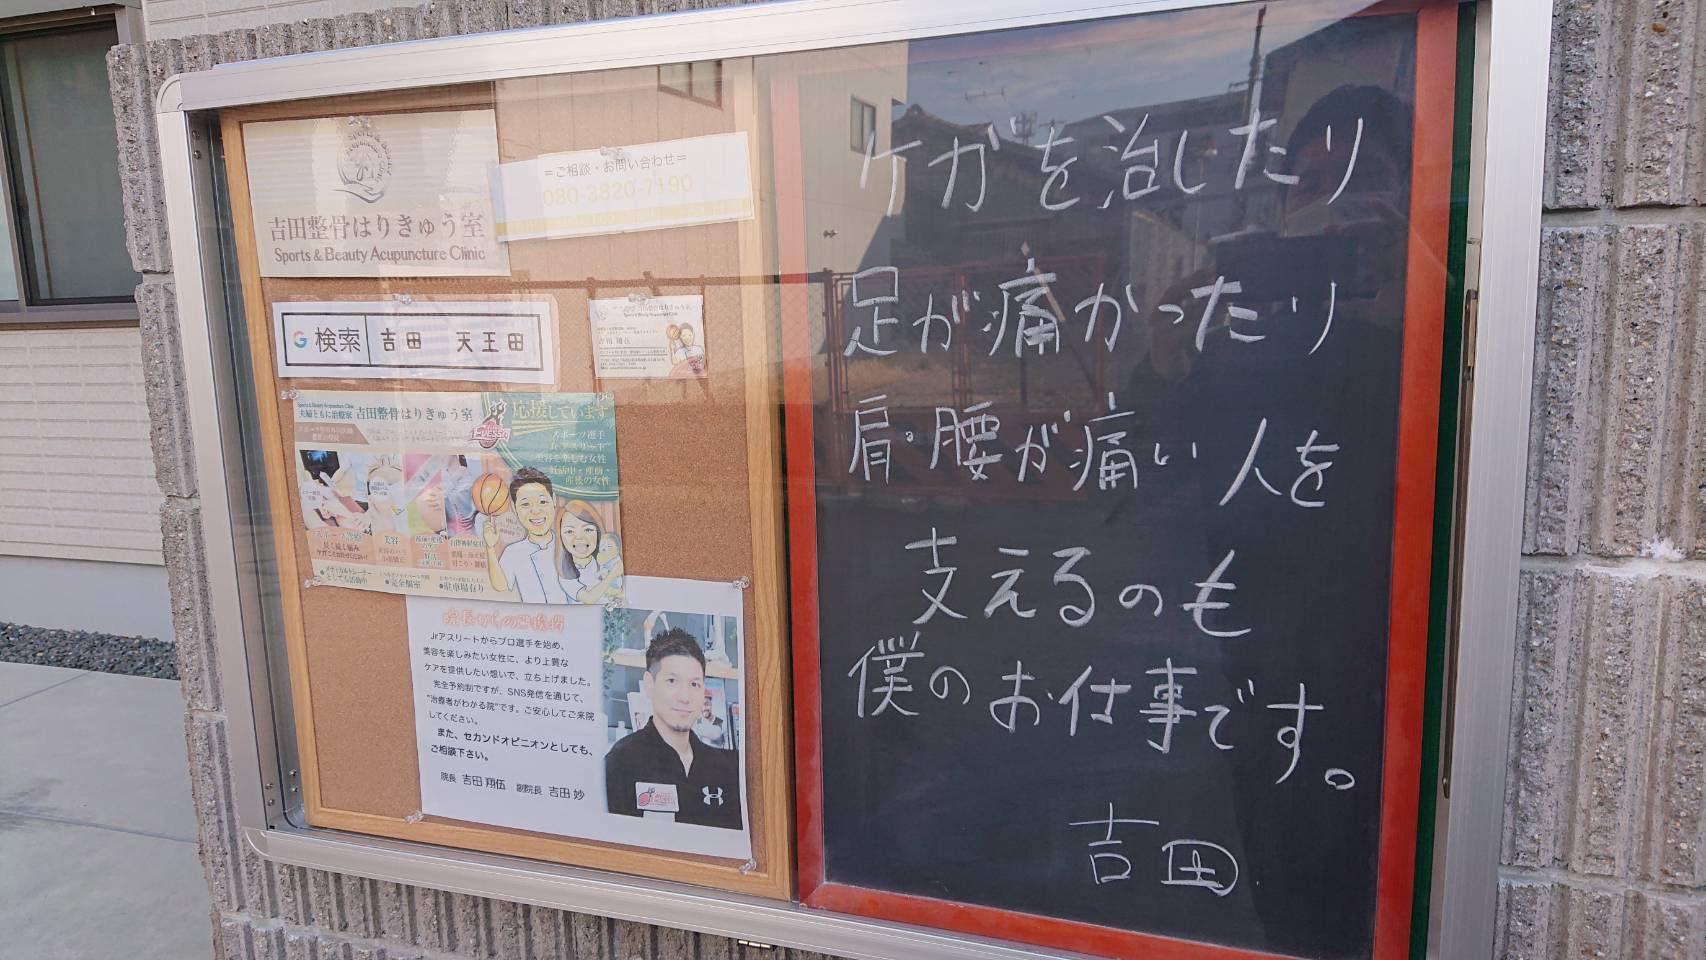 吉田整骨はりきゅう室
Sports & Beauty Acupuncture Clinic
=ご相談・お問い合わせ=
080-3820-7190
検索 吉田 天王田
夫婦ともに治療家 吉田整骨はりきゅう室
応援しています
スポーツ選手
Jrアスリート
美容を楽しむ女性
妊活中・産前・
産後の女性
スポーツ診療
美容
メディカルトレーナー
としても活動中
完全個室
駐車場有り
院長からのご挨拶
Jrアスリートからプロ選手を始め、
美容を楽しみたい女性に、より上質な
ケアを提供したい想いで、立ち上げました。
完全予約制ですが、SNS発信を通じて、
"治療者がわかる院"です。ご安心してご来院
してください。
また、セカンドオピニオンとしても、
ご相談下さい。
院長 吉田 翔伍 副院長 吉田 妙
ケガを治したり
足が痛かったり
肩・腰が痛い人を
支えるのも
僕のお仕事です。
吉田